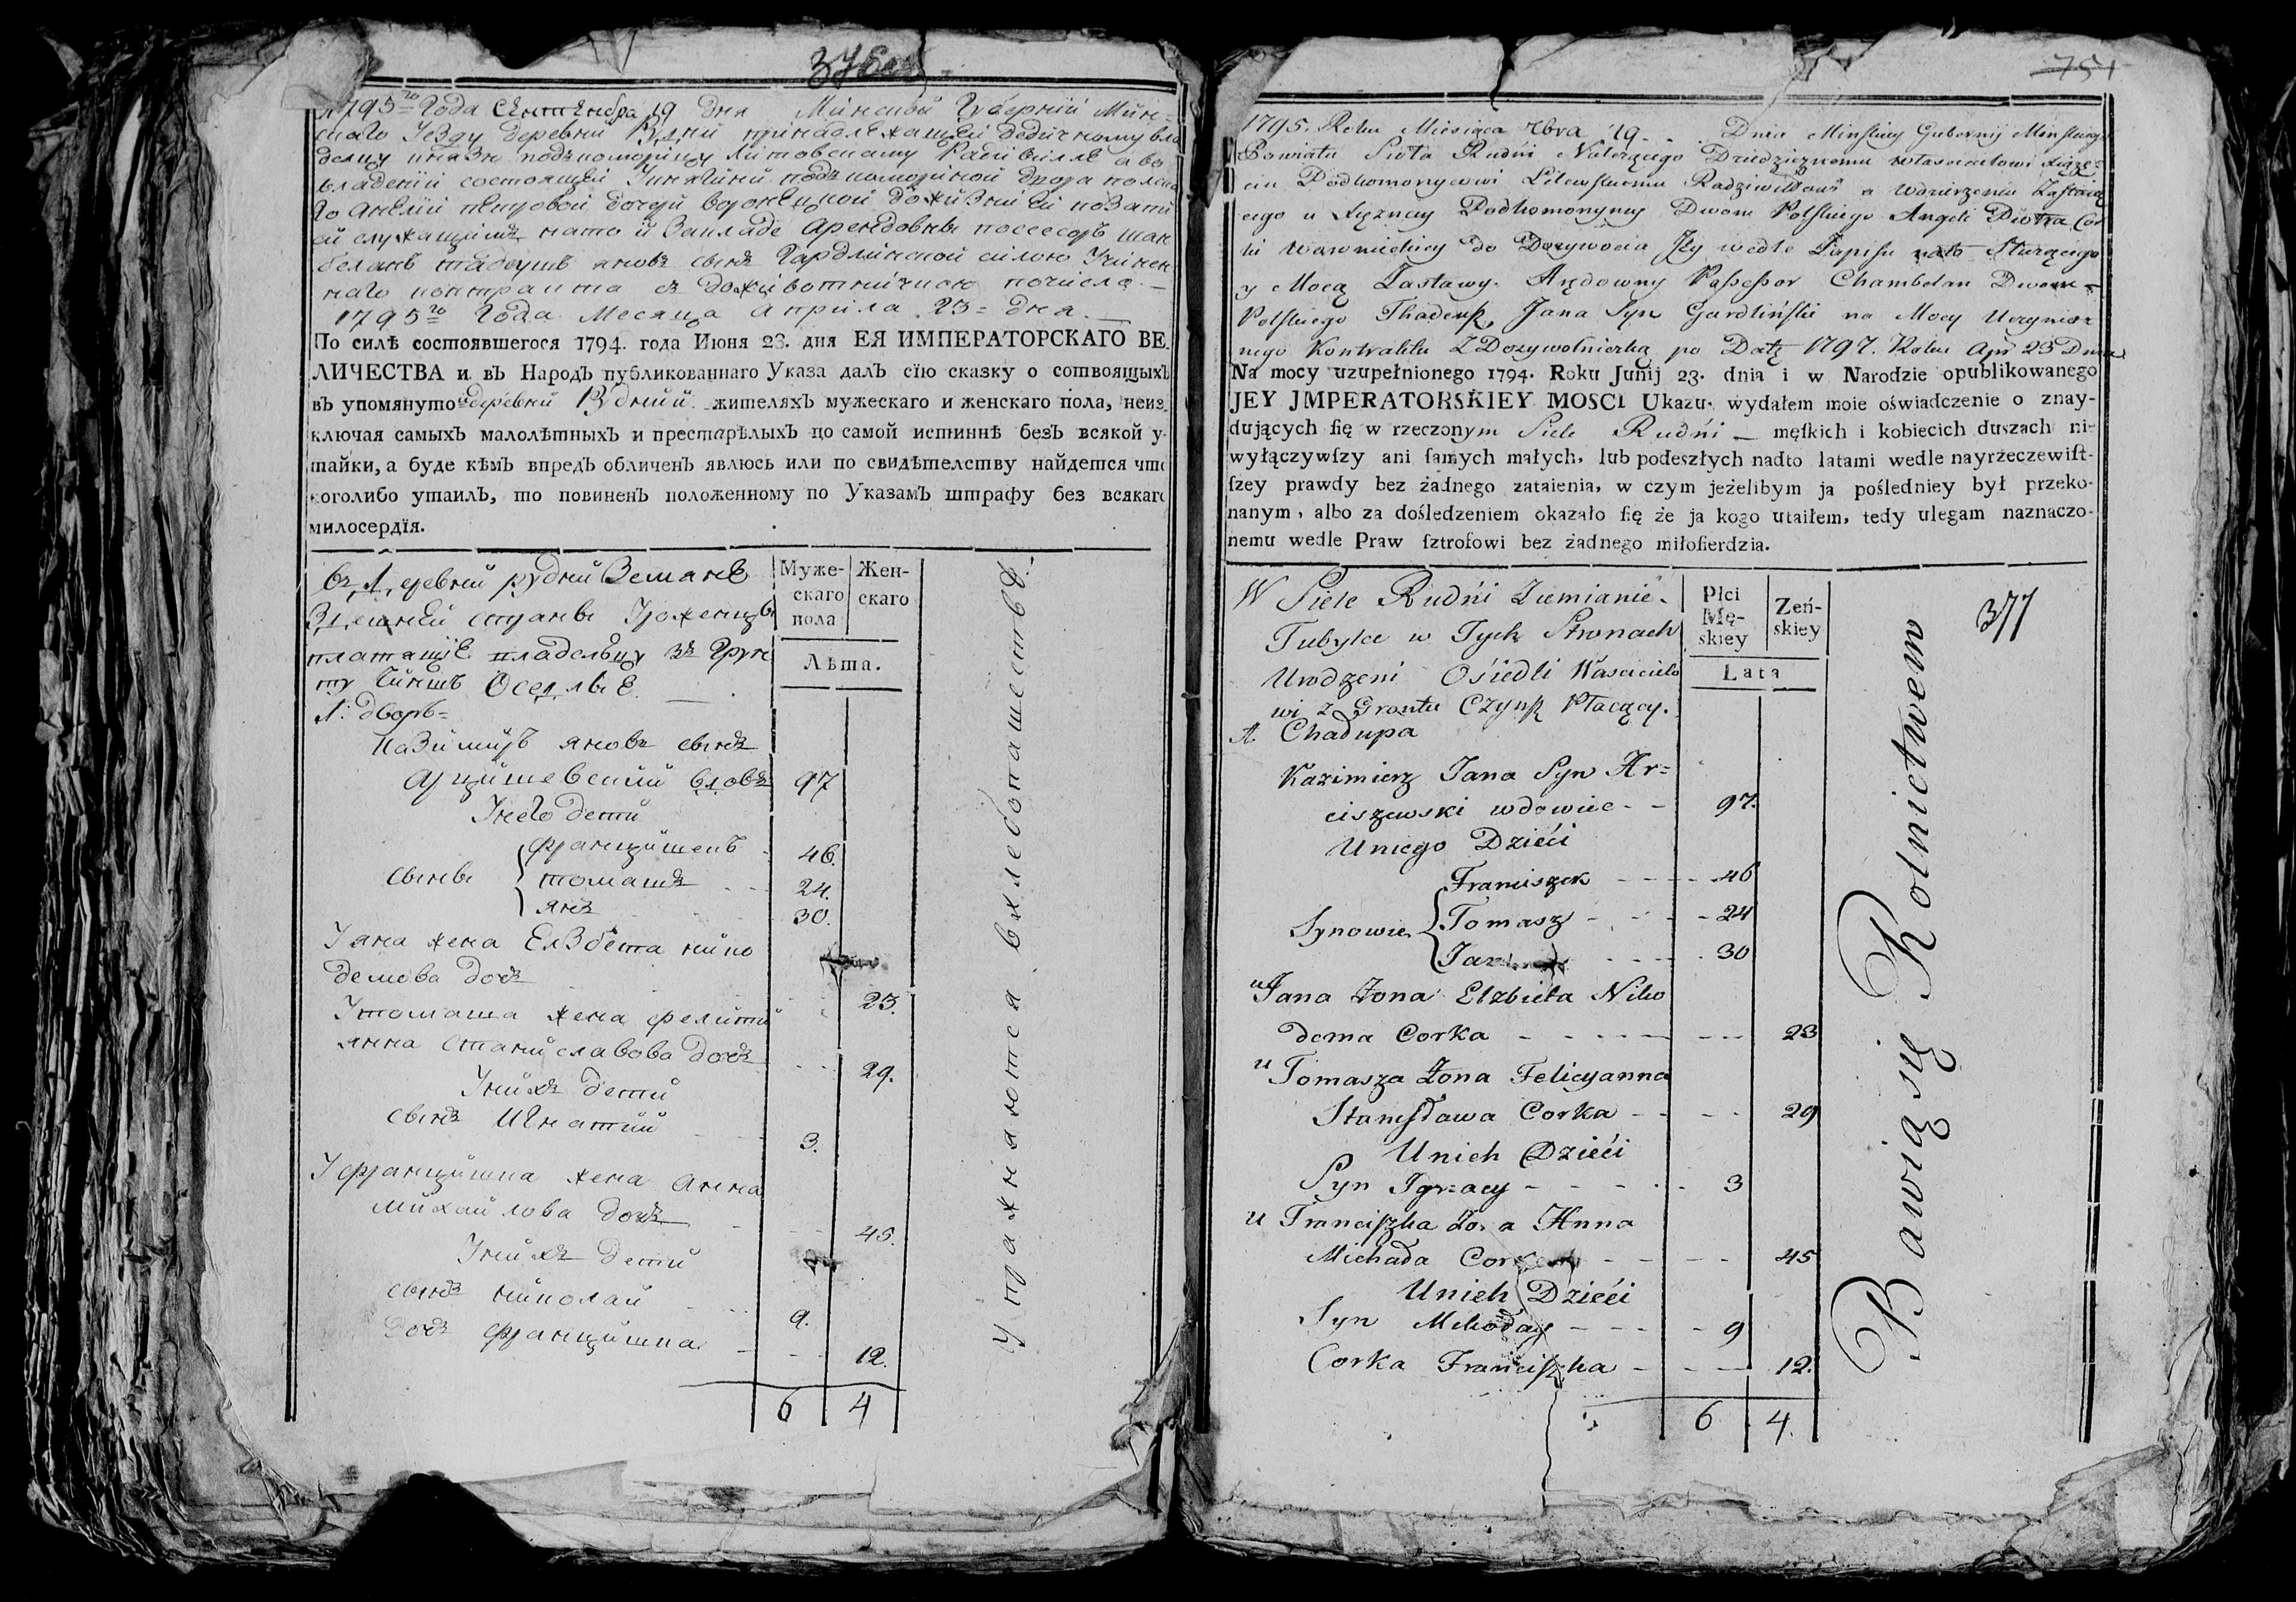 376об
1795го Года Сентября 19 дня Минской Губернии Мин-
скаго Уезду деревни Рудни принадлежащей дедичному вла
делцу князю подкоморицу Литовскому Радивилле а во
владении состоящей У княгини подкоморинной двора полска
го Анелии петровой дочери воронецкой
ей служащимъ на то и Закладе Арендовны поссесоръ шам
беланъ тадеушъ яновъ сынъ Гардлинской силою Учинен
наго контракта съ доживотничкою
1795го Года Месяца Априля 23= дня.
По силѣ состоявшегося 1794. года Июня 23. дня ЕЯ ИМПЕРАТОРСКАГО ВЕ-
ЛИЧЕСТВА и въ Народъ публикованнаго Указа далъ сїю сказку о сотвоящыхъ
въ упомянуто деревни Рудний жителяхъ мужескаго и женскаго пола, неиз-
ключая самыхъ малолѣтныхъ и престарѣлыхъ по самой истиннѣ безъ всякой у-
тайки, а буде кѣмъ впредъ обличенъ явлюсь или по свидѣтелству найдется что
коголибо утаилъ, то повиненъ положенному по Указамъ штрафу без всякаго
милосердїя.
въ деревней рудний Земяне
Здешней стране Уроженцы
платящие владельцу зъ Грун
ту Чиншъ Оселые
Муже-
скаго
пола
Жен-
скаго
Лѣта.
1. дворъ=
Казимиръ яновъ сынъ
Арцишевский вдовъ 97
У него дети
францишекъ 46.
сыны томашъ 24.
янъ 30.
У яна жена Елзбета нико
демова дочь 23.
У томаша жена фелици
янна Станиславова дочь 29.
У нихъ дети
сынъ Игнатий 3.
У францишка жена Анна
михайлова дочь 45.
У нихъ дети
сынъ николай 9.
дочь францишка 12.
6 4
Упражняются в хлебопашестве:
751
377
1795. Roku Miesiąca 7bra 19 Dnia Minskiey Gubernij Minskiego
Powiatu Sioła Rudni Należącego Dziedzicznemu włascicielowi Xiąże=
ciu Podkomorzycowi Litewskiemu Radziwiłłowi a w dzierżeniu Zastaią
cego u Xiężney Podkomorzyney Dworu Polskiego Angeli Piotra Cor
ki Woronieckiey do Dożywocia Jey wedle Zapisu na to Służącego
y Mocą Zastawy. Arędowny Possessor Chambelan Dworu
Polskiego Thadeusz Jana Syn Gardliński na Mocy Uczynio=
nego Kontraktu Z Dożywotniczką po Datą 1797. Roku Apr 23 Dnia
Na mocy uzupełnionego 1794. Roku Junij 23. dnia i w Narodzie opublikowanego
JEY JMPERATORSKIEY MOSCI Ukazu. wydałem moie oświadczenie o znay-
dujących ſię w rzeczonym Siele Rudni — męſkich i kobiecich duszach ni-
wyłączywſzy ani ſamych małych, lub podeszłych nadto latami wedle nayrzeczewiſt-
ſzey prawdy bez żadnego zataienia, w czym jeżelibym ja pośledniey był przeko-
nanym, albo za dośledzeniem okazało ſię że ja kogo utaiłem, tedy ulegam naznaczo-
nemu wedle Praw ſztrofowi bez żadnego miłoſierdzia.
W Siele Rudńi Ziemianie
Tubylce w Tych Stronach
Urodzeni Osiedli Własciciélo
wi z Grontu Czynsz Płacący.
Płci
Mę-
skiey
Zeń-
skiey
Lata
1. Chałupa
Kazimierz Jana Syn Ar=
ciszewski wdowiec - - 97.
U niego Dzieći
Franciszek - - - - 46
Synowie Tomasz - - - - 24
Jan - - - 30
u Jana Żona Elzbieta Niko
dema Corka - - - - - 23
u Tomasza Żona Felicyanna
Stanisława Corka - - - - 29
U nich Dzieći
Syn Ignacy - - - - - 3
u Franciszka Żona Anna
Michała Corka - - - - 45
U nich Dzieći
Syn Mikołay - - - - 9
Corka Franciszka - - - - 12.
6 4.
Bawią się Rolnictwem